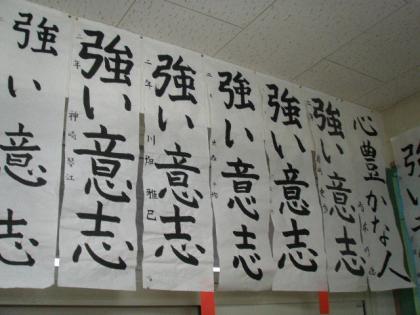 強い意志
強い意志
二年 神崎 琴江
強い意志
二年 川畑 雅巳
強い意志
二
強い意志
強い意志
心豊かな人
強い